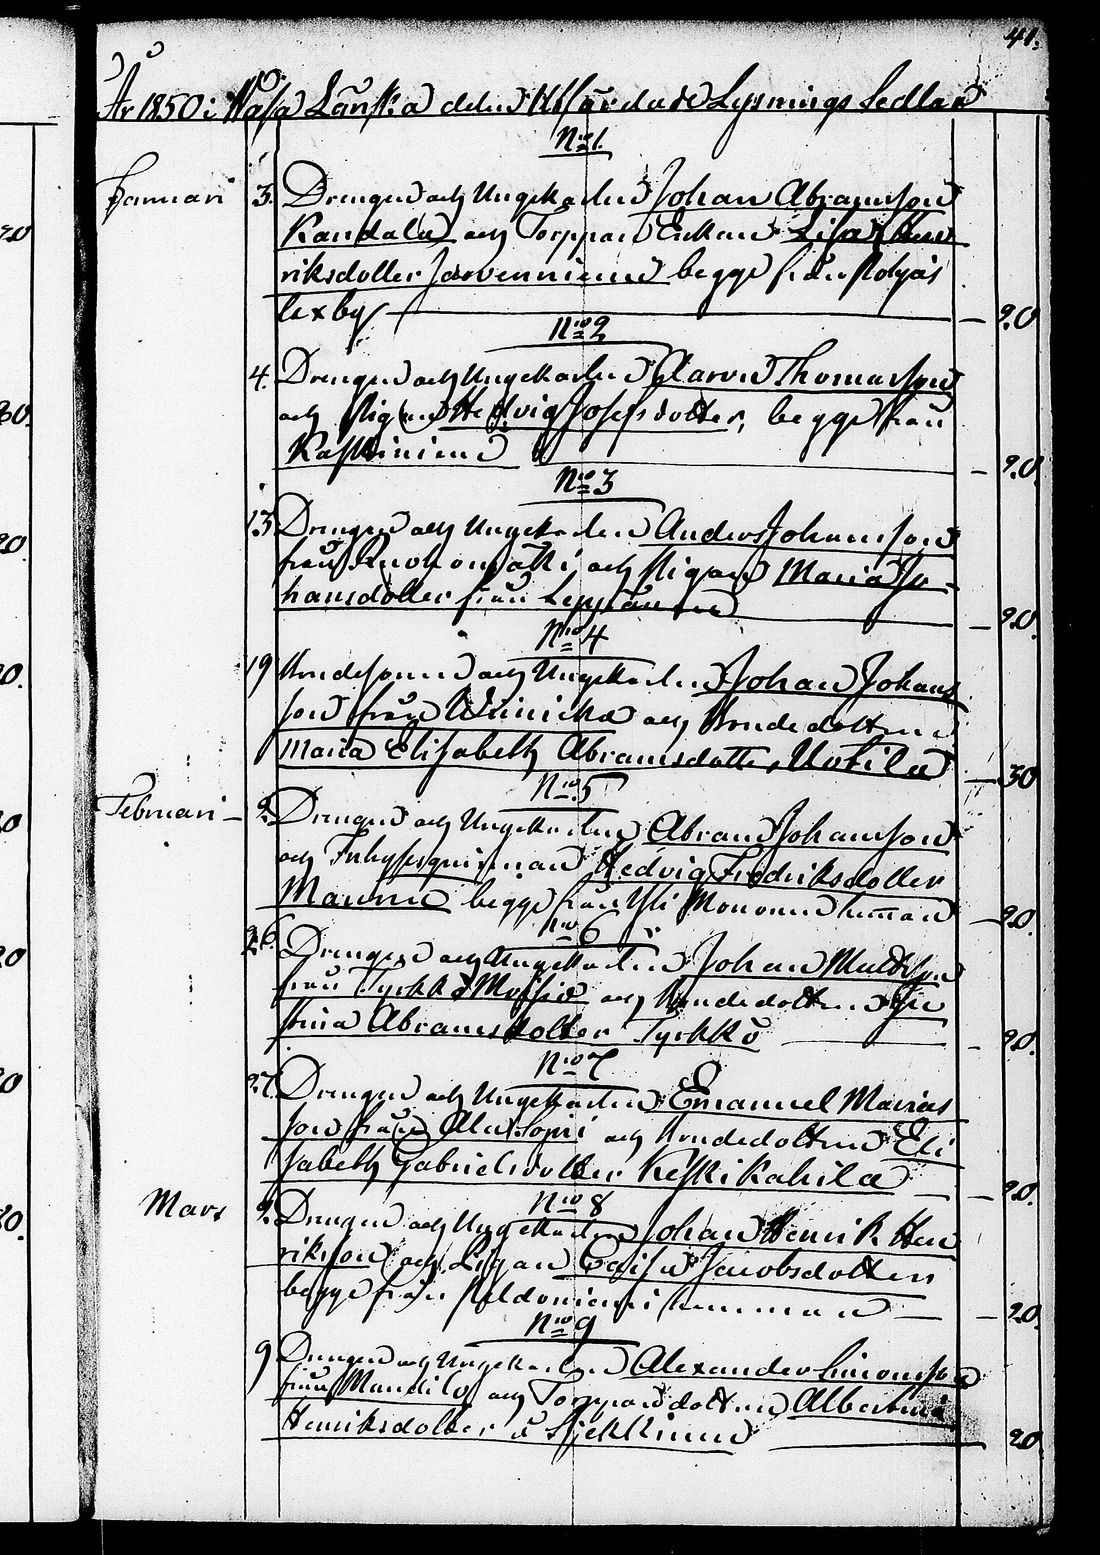 41.
År 1850 i Wasa Länska delen Utfärdade Lysnings Sedlar
No 1.
Januari 3. Drengen och Ungekarlen Johan Abramsson
Kandala och Torppare Enkan Lisa Hen
riksdotter Jarvenniemi begge från Pohjas
lax by 20
No 2
4. Drengen och Ungekarlen Aaron Thomasson
och Pigan Hedvig Josefsdotter, begge från
Kaskiniemi 20.
No 3
13 Drengen och Ungekarlen Anders Johansson
från och Pigan Maria Jo
hansdotter från 20.
No 4
19 Bondesonen och Ungekarlen Johan Johans
son från och Bondedottren
Maria Elisabeth Abramsdotter, Uusitalo 30
No 5
Februari 9. Drengen och Ungekarlen Abram Johansson
och Inhysesqvinnan Hedvig Fredriksdotter
Mannin begge från Yli Mononen hemman 20.
No 6
26. Drengen och Ungekarlen Johan Mattsson
från Tyrkkö och Bondedottren
Abramsdotter Tyrkkö 20.
No 7
27. Drengen och Ungekarlen Emanuel Marias
son från Alasopri och Bondedottren Eli
sabeth Gabrielsdotter Keskikahila 20.
No 8
Mars 9. Drengen och Ungekarlen Johan Henrik Hen
riksson och Pigan Caisa Jacobsdotter
begge från Peldoniemi hemman 20.
No 9
9 Drengen och Ungekarlen Alexander Simonsson
från Mandila och Torppare dottren Albertina
Henriksdotter 20